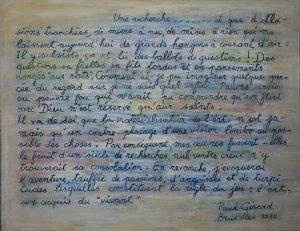 Une recherche ........ et que d'illu-
sions tranchées, de mises à nu, de mises à rien qui me
laissent aujourd'hui de grands hangars à courant d'air.
Il y subsiste ça et là des ballots de questions ! Des
questions en failles en fils tordus et empoussiérés
rongés aux rats. Comment ai-je pu imaginer quelque per-
cée du regard sur je ne sais quel infini. Pauvre crétin
ou pauvre fou qui n'avait pu comprendre qu'un flirt
avec Dieu n'est réservé qu'aux saints.
Il va de soi que la matérialisation de l'art n'est ja-
mais qu'un contre placage d'une vision limitée au pos-
sible des choses. Par conséquent mes œuvres fussent-elles
le fruit d'un siècle de recherches, nul ventre creux n'y
trouverait sa consolation. En revanche, j'évoquerai
l'aventure, truffée de passions, d'angoisses et de turpi-
tudes, lesquelles constituent la règle du jeu : l'art
un acquis du "vivant".
Paul Gérard
Bruxelles